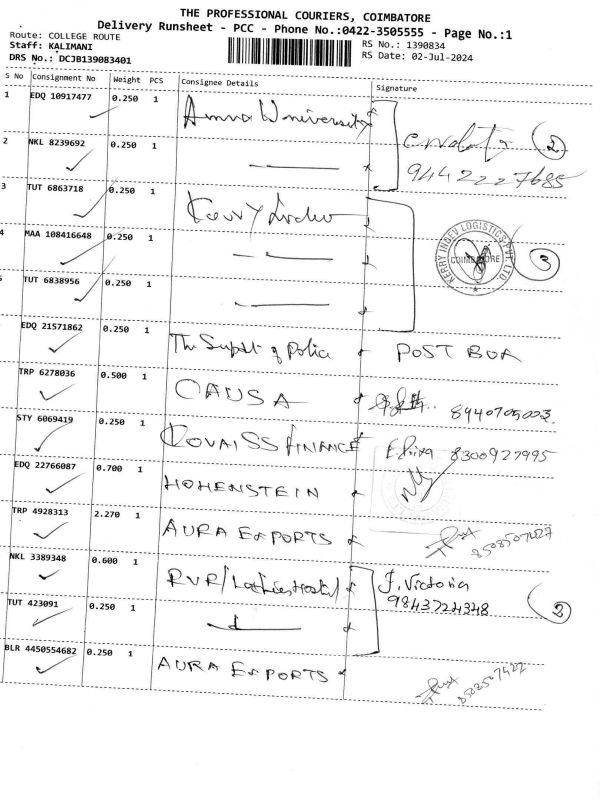 THE PROFESSIONAL COURIERS, COIMBATORE
Delivery Runsheet - PCC - Phone No.:0422-3505555 - Page No.:1
Route: COLLEGE ROUTE
Staff: KALIMANI
DRS No.: DCJB139083401
RS No.: 1390834
RS Date: 02-Jul-2024
S No Consignment No Weight PCS Consignee Details Signature
1 EDQ 10917477 0.250 1 Anna University
2 NKL 8239692 0.250 1
9442227685 2
3 TUT 6863718 0.250 1 Kerry Indev
4 MAA 108416648 0.250 1
KERRY INDEV LOGISTICS PVT. LTD. COIMBATORE 3
TUT 6838956 0.250 1
EDQ 21571862 0.250 1 The Supdt of Police POST BOX
TRP 6278036 0.500 1 CAUSA 8940705003.
STY 6069419 0.250 1 KOVAI SS FINANCE 8300927995
EDQ 22766087 0.700 1 HOHENSTEIN
TRP 4928313 2.270 1 AURA EXPORTS 8508507427
NKL 3389348 0.600 1 RVR/ Ladies Hostel J. Victoria
9843724348
TUT 423091 0.250 1 2
BLR 4450554682 0.250 1 AURA EXPORTS 8508507422